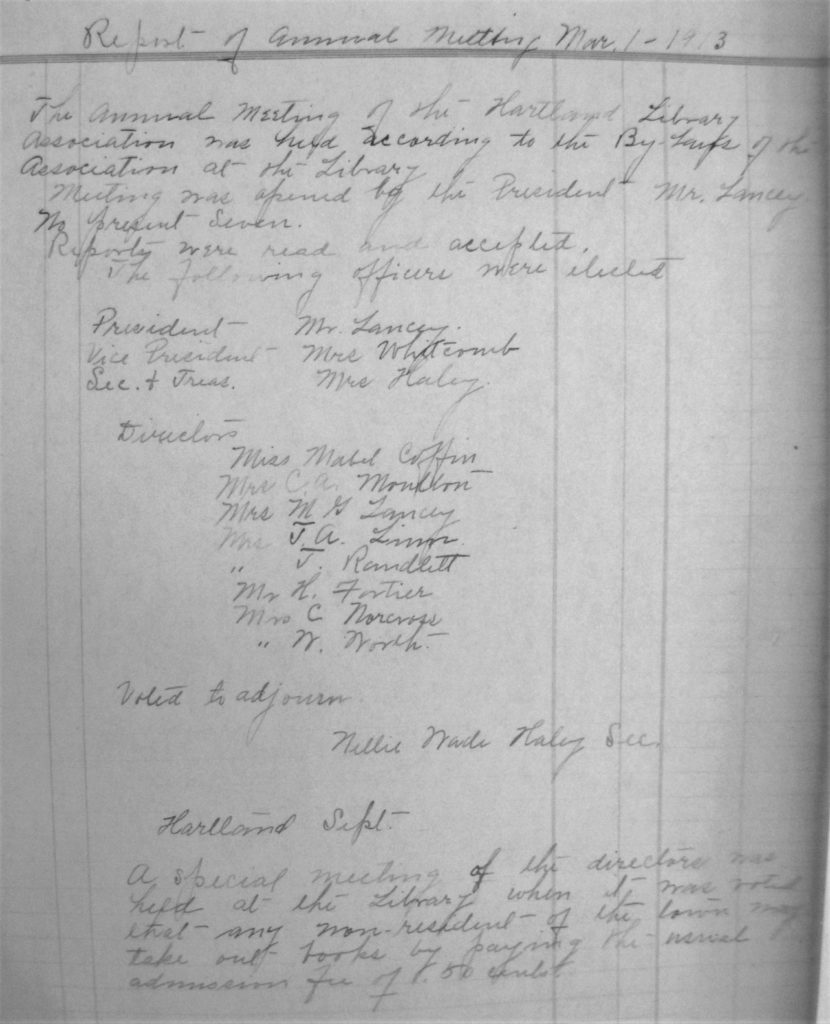 Report of Annual Meeting Mar. 1 - 1913
The Annual Meeting of the Hartland Library
Association was held according to the By-Laws of the
Association at the Library
Meeting was opened by the President Mr. Lancey
No present Seven.
Reports were read and accepted.
The following officers were elected
President Mr. Lancey.
Vice President Mrs Whitcomb
Sec. & Treas. Mrs Haley.
Directors
Miss Mabel Coffin
Mrs C. A. Moulton
Mrs M G Lancey
Mrs J. A. Linn
" J. Randlett
Mr H. Fortier
Mrs C Norcross
" W. Worth.
Voted to adjourn.
Nellie Wade Haley Sec.
Hartland Sept.
A special meeting of the directors was
held at the Library when it was voted
that any non-resident of the town may
take out books by paying the usual
admission fee of .50 cents.